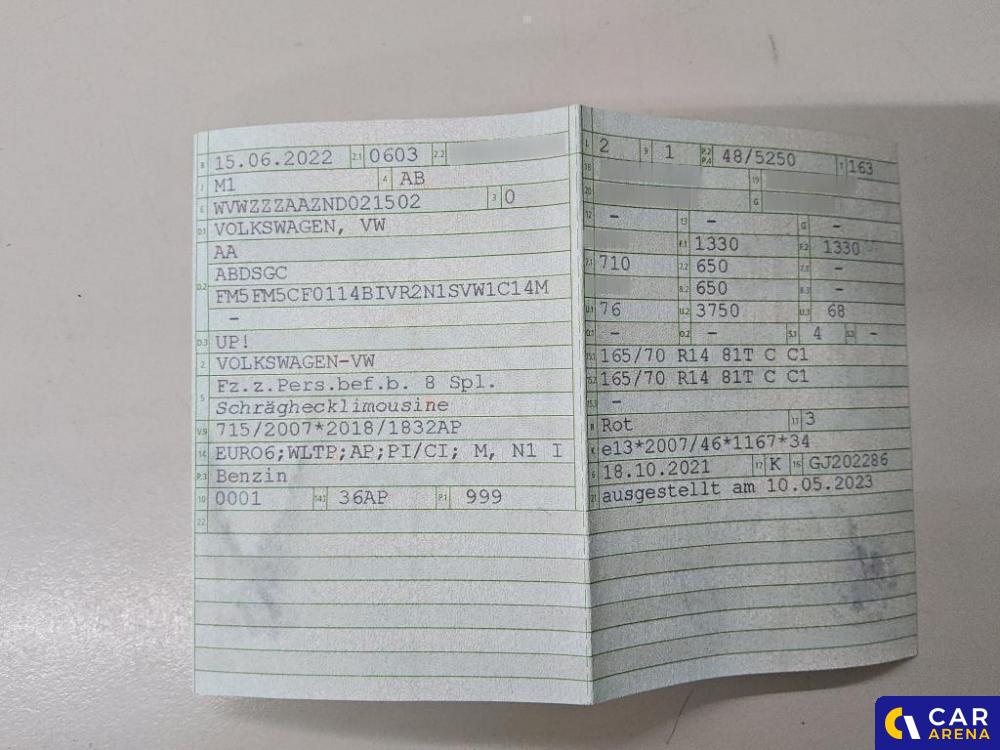 B 15.06.2022 2.1 0603 2.2
J M1 4 AB
E WVWZZZAAZND021502 3 0
D.1 VOLKSWAGEN, VW
AA
D.2 ABDSGC
FM5FM5CF0114BIVR2N1SVW1C14M
–
D.3 UP!
2 VOLKSWAGEN-VW
5 Fz.z.Pers.bef.b. 8 Spl.
Schräghecklimousine
V.9 715/2007*2018/1832AP
14 EURO6;WLTP;AP;PI/CI; M, N1 I
P.3 Benzin
10 0001 14.1 36AP P.1 999
22
L 2 9 1 P.2 P.4 48/5250 T 163
18 19
20 G
12 – 13 – Q –
F.1 1330 F.2 1330
7.1 710 7.2 650 7.3 –
8.2 650 8.3 –
U.1 76 U.2 3750 U.3 68
O.1 – O.2 – S.1 4 S.2 –
15.1 165/70 R14 81T C C1
15.2 165/70 R14 81T C C1
15.3 –
R Rot 11 3
K e13*2007/46*1167*34
6 18.10.2021 17 K 16 GJ202286
21 ausgestellt am 10.05.2023
CAR
ARENA